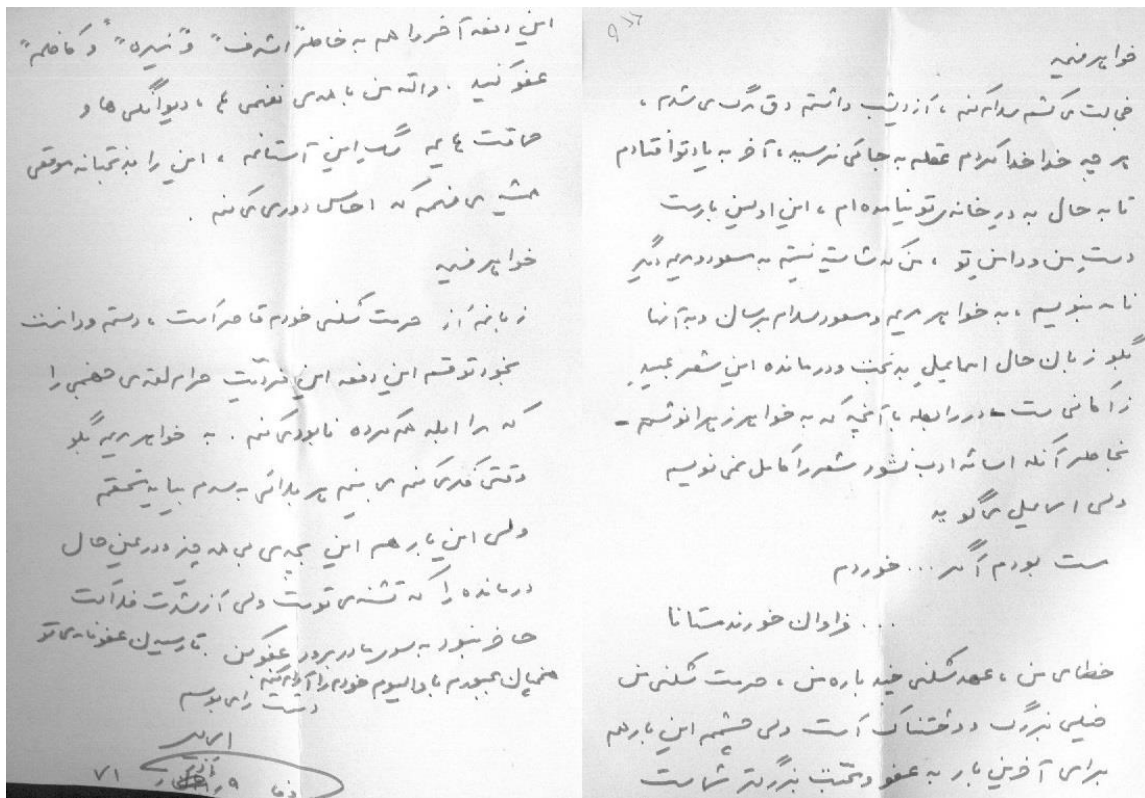 خواهر فهیمه
خجالت می کشم سلام کنم ، از دیشب داشتم دق مرگ می شدم ،
هر چه خدا خدا کردم عقلم به جائی نرسید ، آخر به یاد تو افتادم
تا به حال به در خانه ی تو نیامده ام ، این اولین بار ست
دست من و دامن تو ، من که شایسته نیستم به مسعود و مریم دیگر
نامه بنویسم ، به خواهر مریم و مسعود سلام برسان و به آنها
بگو زبان حال اسماعیل بدبخت و درمانده این شعر عبید
زاکانی ست - در رابطه با آنچه که به خواهر زهرا نوشتم -
بخاطر آنکه اسائه ادب نشود شعر را کامل نمی نویسم
ولی اسماعیل می گوید
مست بودم اگر ... خوردم
... فراوان خورند مستانا
خطای من ، عهد شکنی چند باره من ، حرمت شکنی من
خیلی بزرگ و وحشتناک است ولی چشمم این بار هم
برای آخرین بار به عفو و محبت بزرگتر شماست
این دفعه آخر را هم به خاطر "اشرف" و "نیره" و "کاظم"
عفو کنید . والله من با همه ی نفهمی ها ، دیوانگی ها و
حماقت هایم سگ این آستانم ، این را بدبختانه موقعی
می فهمم که احساس دوری می کنم .
خواهر فهیمه
زبانم از حرمت شکنی خودم قاصر است ، دستم و دامنت
بخودت قسم این دفعه این فردیت حراملقمه ی جهنمی را
که مرا ابله هم کرده نابود می کنم . به خواهر مریم بگو
وقتی فکر می کنم می بینم هر بلائی به سرم بیاید مستحقم
ولی این بار هم این بچه ی بی همه چیز و در عین حال
درمانده را که تشنه ی توست ولی از شدت
حاضر نبود به سوی مادر برود عفو کن . تا رسیدن عفونامه ی تو
همچنان مجبورم با والیوم خودم را آرام کنم .
دستت را می بوسم
۹
۷۱